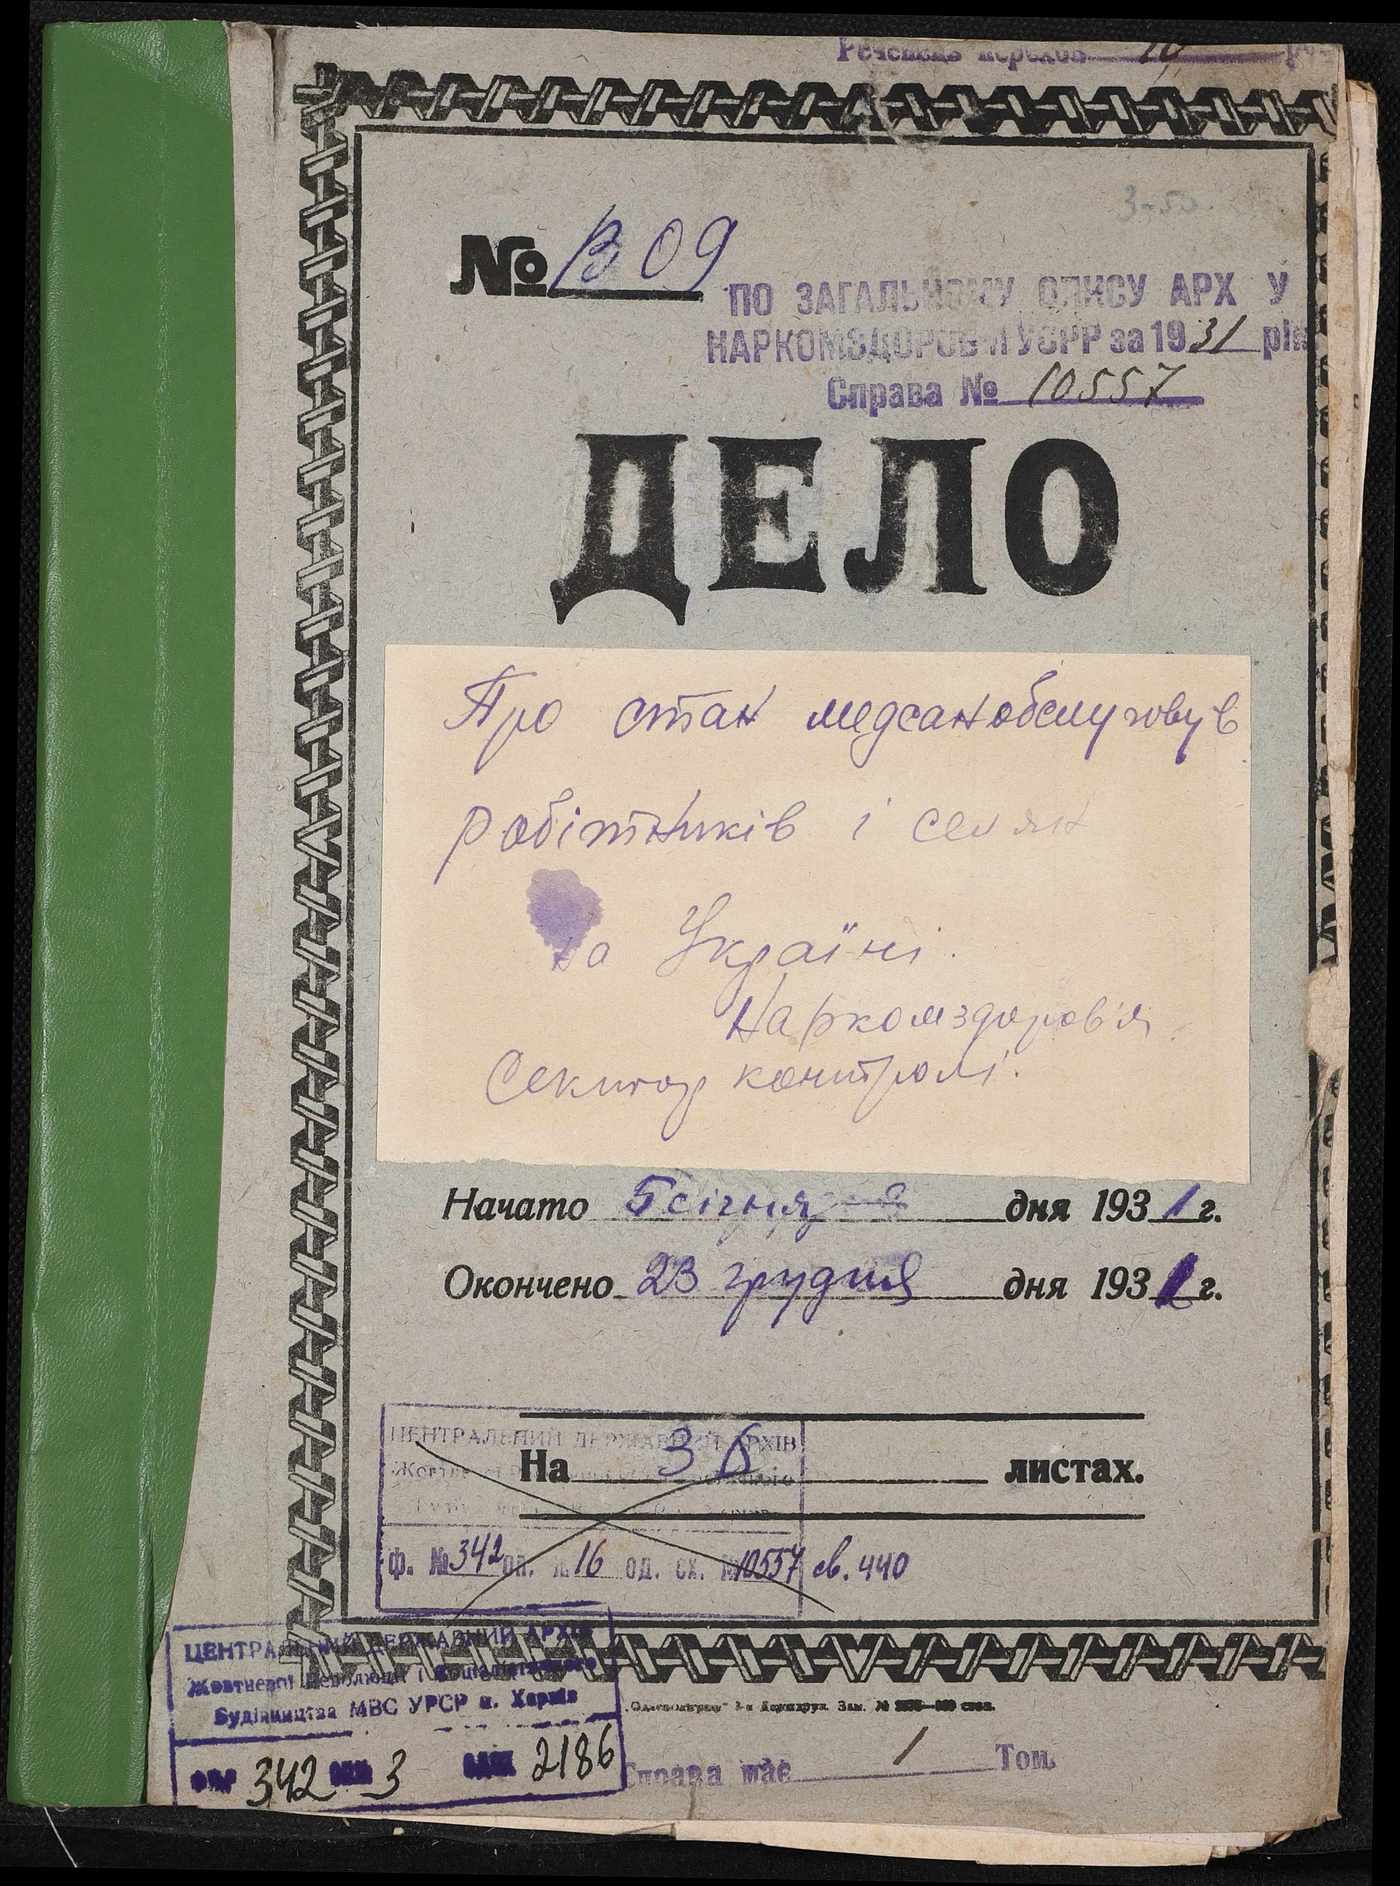 Речень перехов 10
3-50.
№ В 09
ПО ЗАГАЛЬНОМУ ОПИСУ АРХ У
НАРКОМЗДОРОВ Я УСРР за 1931 рік
Справа № 10557
ДЕЛО
Про стан медсанобслуговув
робітників і селян
на Україні.
Наркомздоров'я
Сектор контролі.
Начато 5 січня дня 1931 г.
Окончено 23 грудня дня 1931 г.
ЦЕНТРАЛЬНИЙ ДЕРЖАВНИЙ АРХІВ
На 36 листах.
ф. № 342 оп. № 16 од. сх. № 10557 св. 440
ЦЕНТРАЛЬНИЙ ДЕРЖАВНИЙ АРХІВ
Жовтневої Революції і Соціалістичного
Будівництва МВС УРСР м. Харків
342 3 2186
Справа має 1 Том.